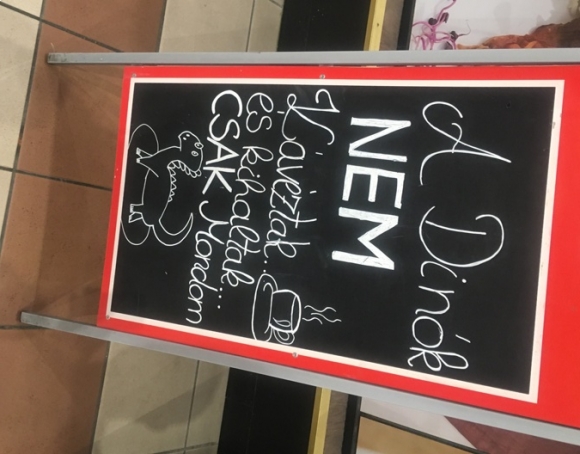 A Dinók
NEM
Káveztak...
és kihaltak...
CSAK Mondom